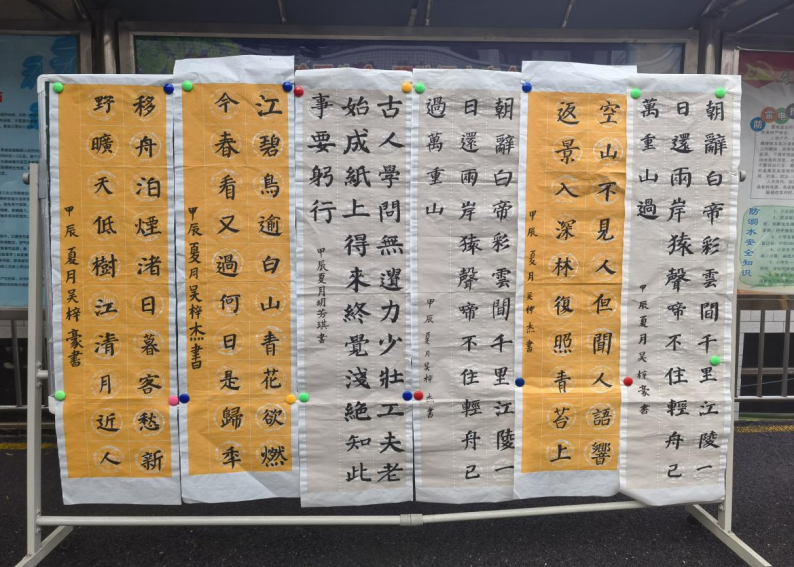 朝辭白帝彩雲間千里江陵一
日還兩岸猿聲啼不住輕舟已
萬重山過
甲辰夏月吴梓豪書
空山不見人但聞人語響
返景入深林復照青苔上
甲辰夏月吴梓杰書
朝辭白帝彩雲間千里江陵一
日還兩岸猿聲啼不住輕舟已
過萬重山
甲辰夏月吴梓杰書
古人學問無遺力少壯工夫老
始成紙上得來終覺淺絕知此
事要躬行
甲辰夏月胡芳琪書
江碧鳥逾白山青花欲燃
今春看又過何日是歸年
甲辰夏月吴梓杰書
移舟泊煙渚日暮客愁新
野曠天低樹江清月近人
甲辰夏月吴梓豪書
防溺水安全知识